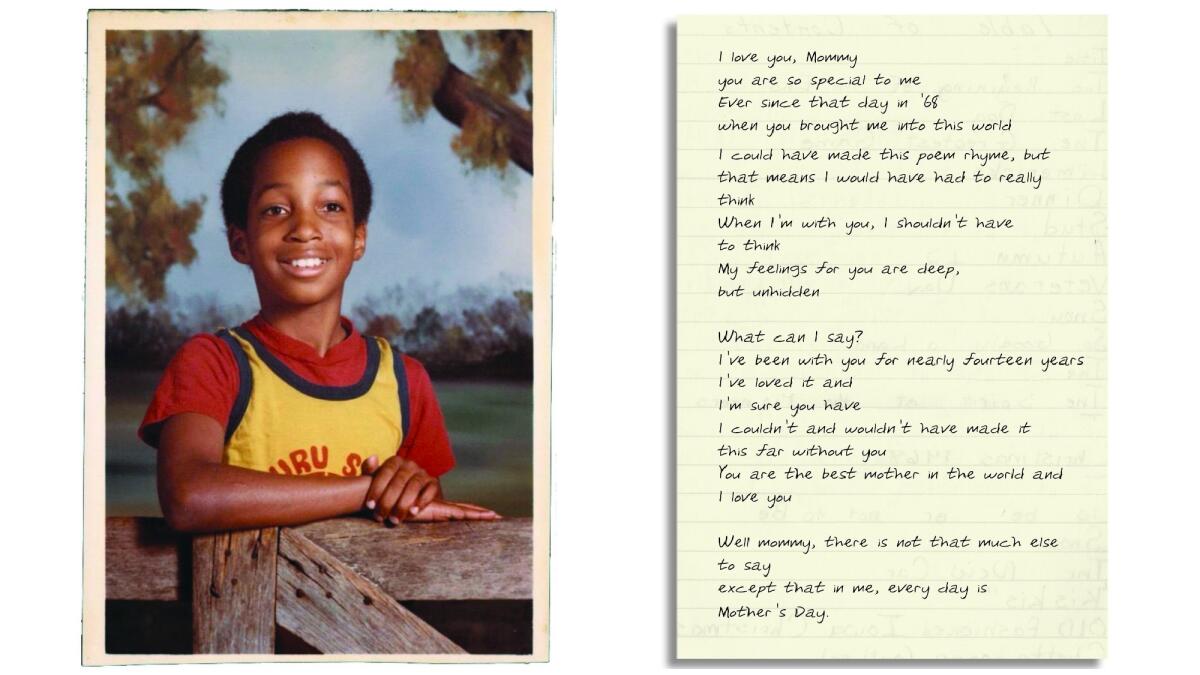 URU S
I love you, Mommy
you are so special to me
Ever since that day in '68
when you brought me into this world
I could have made this poem rhyme, but
that means I would have had to really
think
When I'm with you, I shouldn't have
to think
My feelings for you are deep,
but unhidden
What can I say?
I've been with you for nearly fourteen years
I've loved it and
I'm sure you have
I couldn't and wouldn't have made it
this far without you
You are the best mother in the world and
I love you
Well mommy, there is not that much else
to say
except that in me, every day is
Mother's Day.